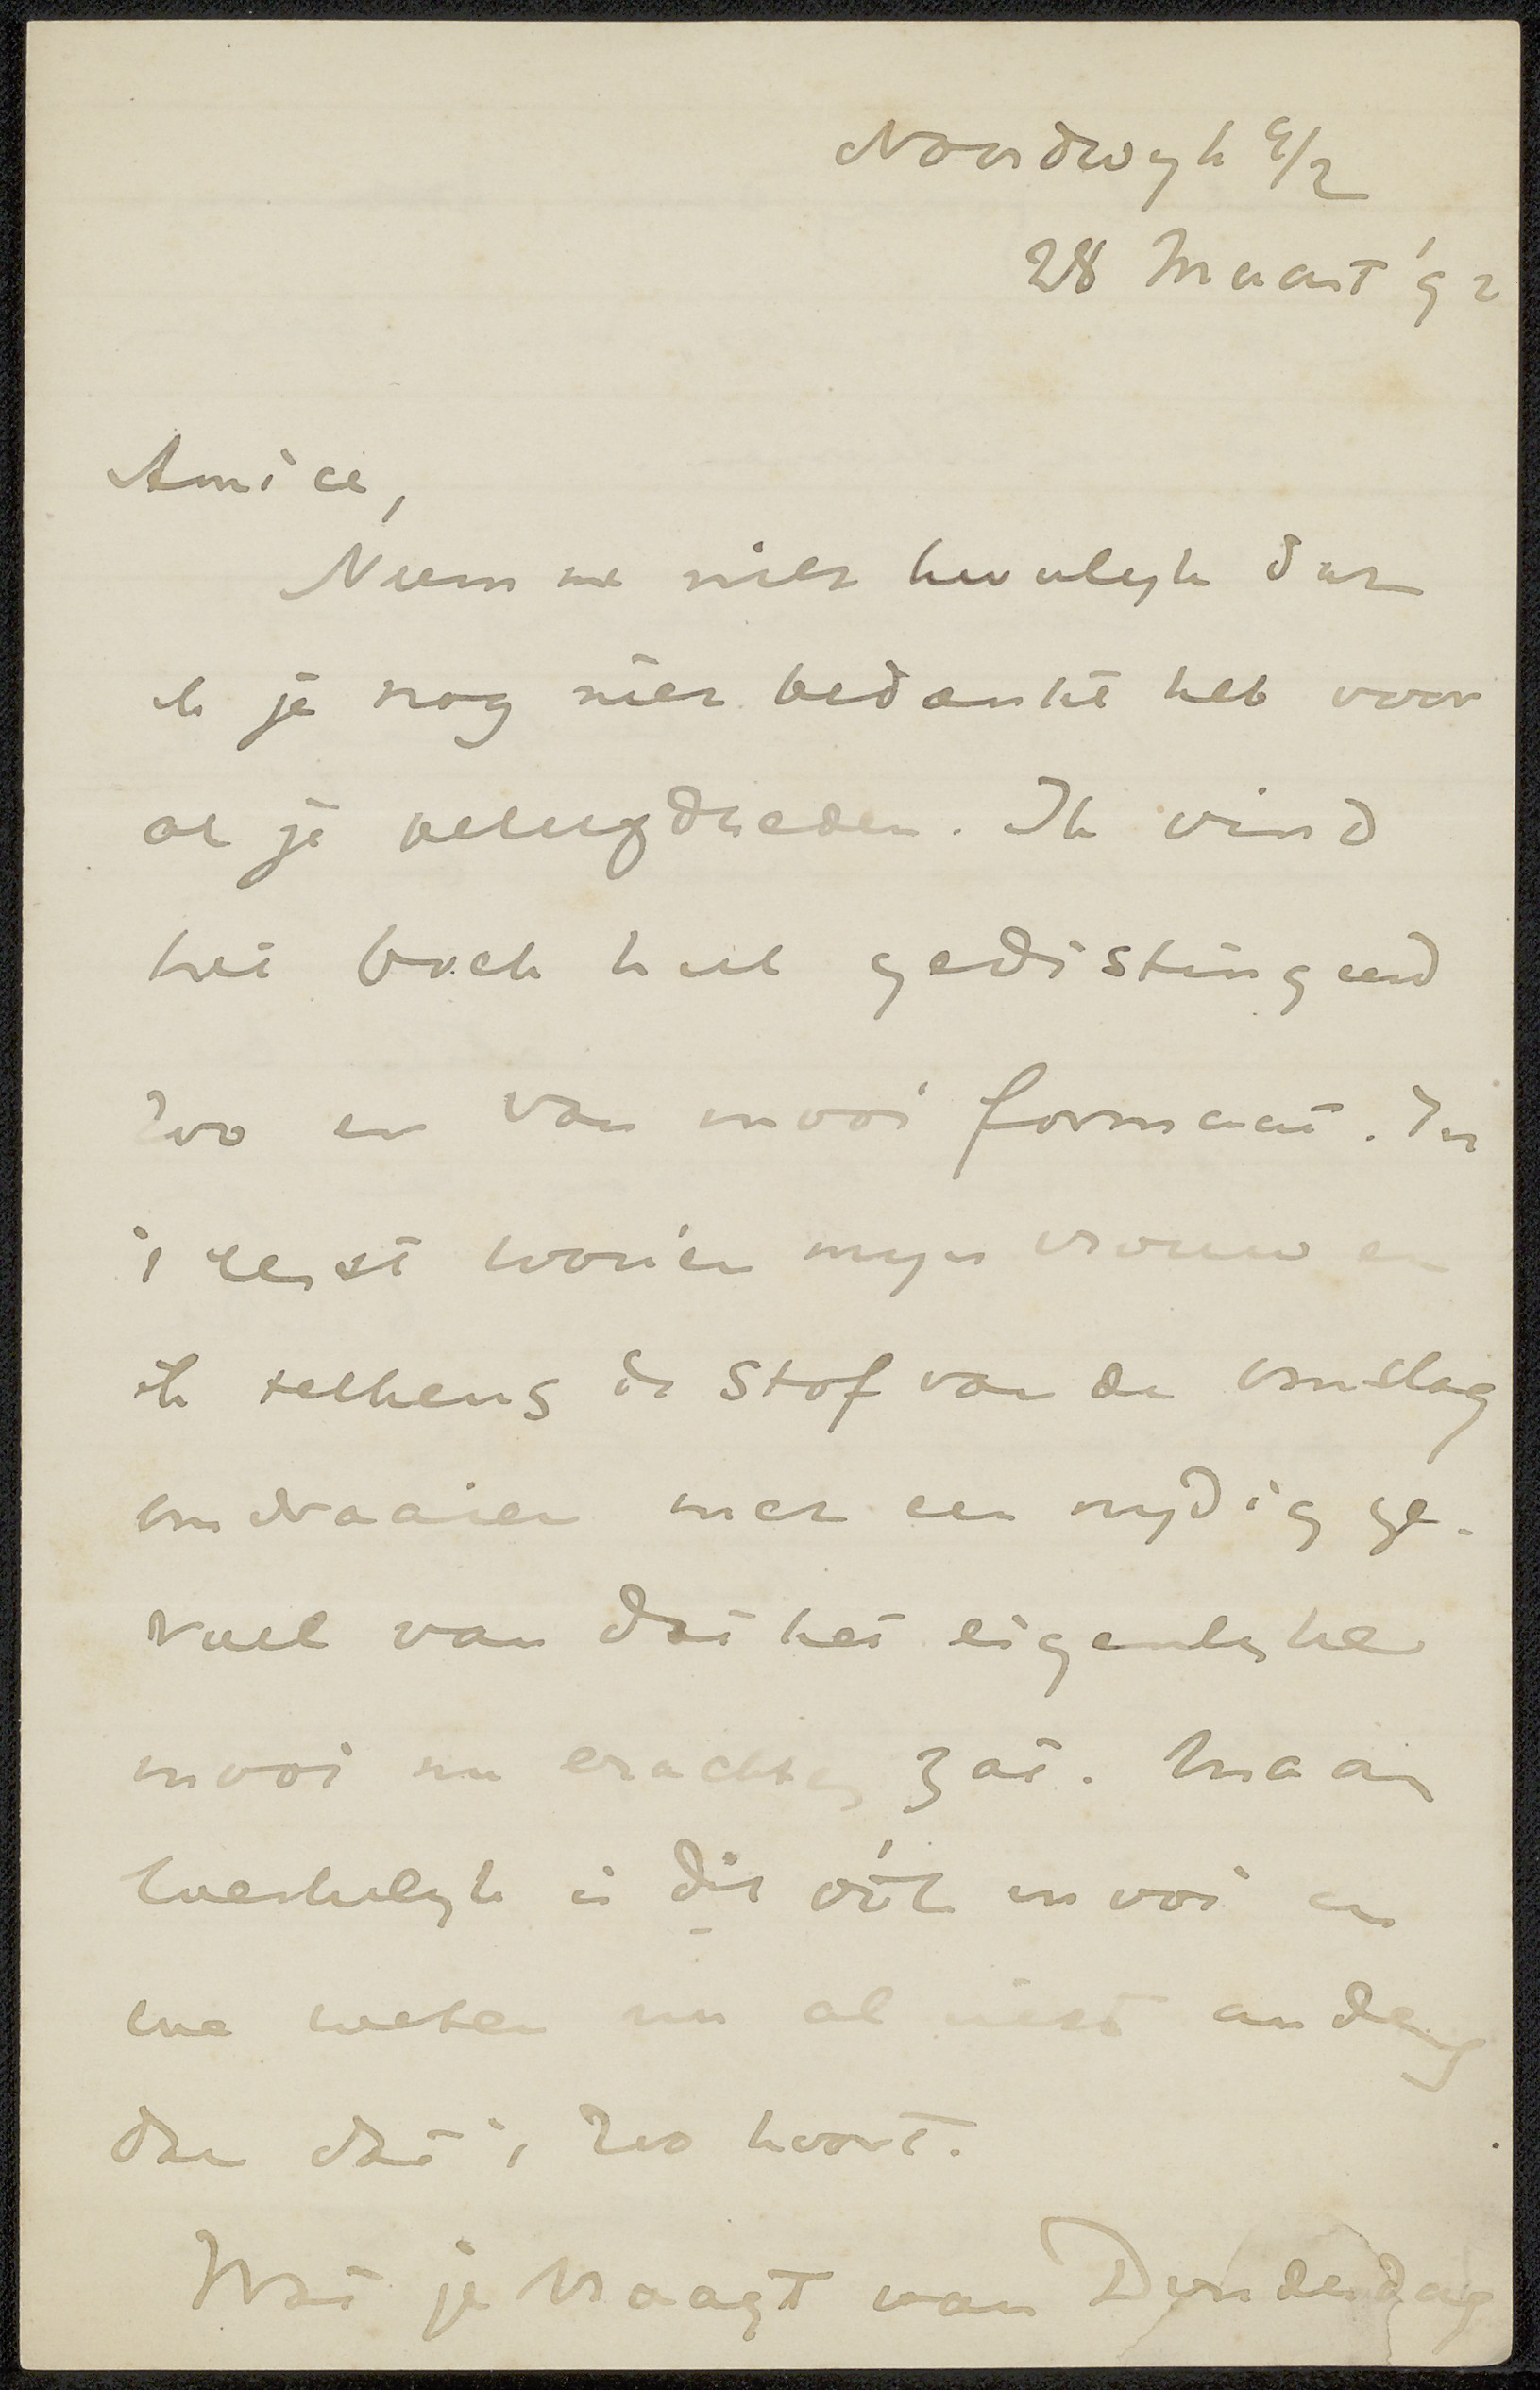 Noordwyk a/z
28 Maart '92
Amice,
Neem me niet kwalyk dat
ik je nog niet bedankt heb voor
al je
Ik vind
het boek heel gedistingeerd
zoo en van mooi formaat. In
't eerst wouen myn vrouw en
ik telkens de stof van de omslag
omdraaien met een nydig ge-
voel van dat het eigenlyke
mooi nu erachter zat. Maar
werkelyk is dit óók mooi en
we weten nu al niet anders
dan dat 't zoo hoort.
Wat je vraagt van Donderdag